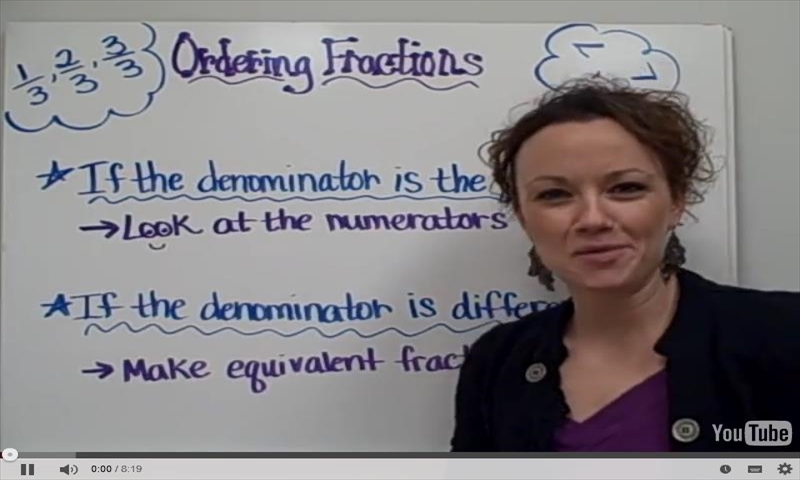 1/3, 2/3, 3/3
Ordering Fractions
If the denominator is the
→ Look at the numerators
If the denominator is
→ Make equivalent
YouTube
0:00 / 8:19